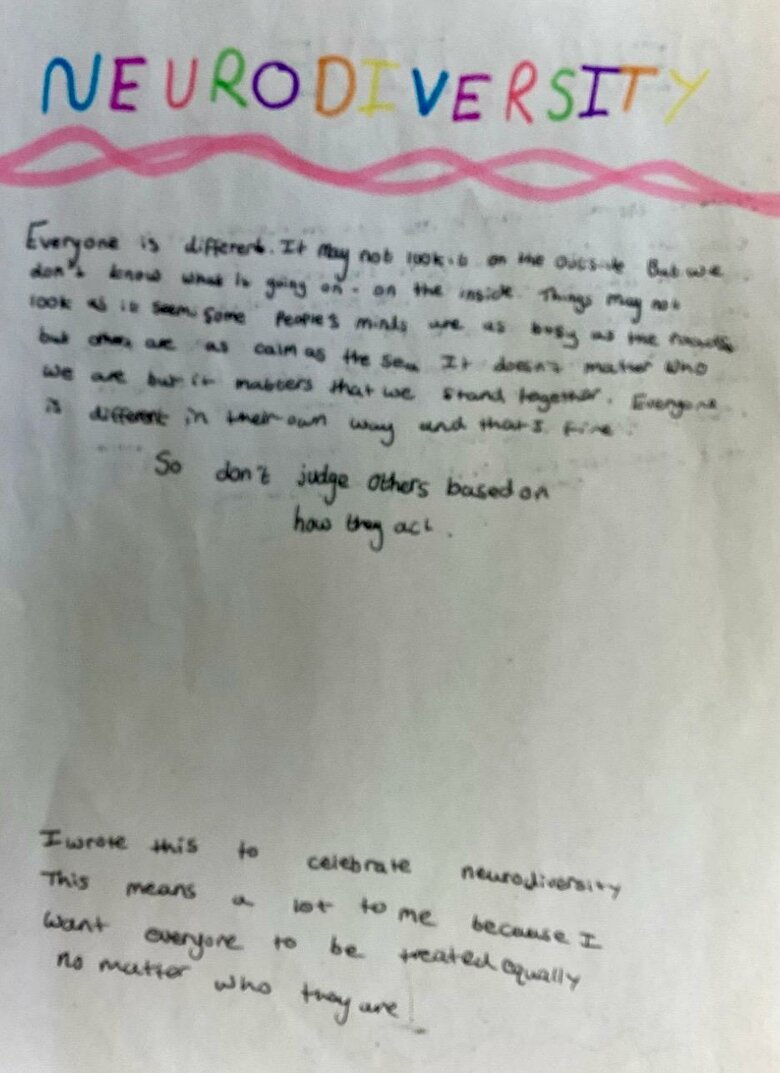 NEURODIVERSITY
Everyone is different. It may not look it on the outside But we
don't know what is going on - on the inside. Things may not
look as it seem. Some People's minds are as busy as the roads
but others are as calm as the sea. It doesn't matter who
we are but it matters that we stand together. Everyone
is different in their own way and that's fine.
So don't judge others based on
how they act.
I wrote this to celebrate neurodiversity
This means a lot to me because I
want everyone to be treated equally
no matter who they are!